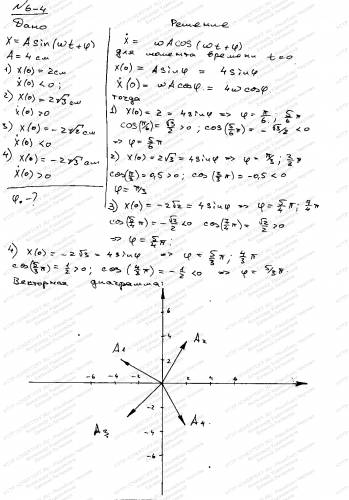 №6-4
Дано
x = A sin(ωt+φ)
A = 4 см
1) x(0) = 2см
ẋ(0) < 0;
2) x(0) = 2√3 см
ẋ(0) > 0
3) x(0) = -2√2 см
ẋ(0) < 0
4) x(0) = -2√3 см
ẋ(0) > 0
φ. -?
Решение
ẋ = ωA cos(ωt+φ)
для момента времени t=0:
x(0) = A sinφ = 4 sinφ
ẋ(0) = ωA cosφ = 4ω cosφ
тогда
1) x(0) = 2 = 4 sinφ => φ = π/6; 5/6 π
cos(π/6) = √3/2 > 0; cos(5/6 π) = -√3/2 < 0
=> φ = 5/6 π
2) x(0) = 2√3 = 4 sinφ => φ = π/3; 2/3 π
cos(π/3) = 0,5 > 0; cos(2/3 π) = -0,5 < 0
φ = π/3
3) x(0) = -2√2 = 4 sinφ => φ = 5/4 π; 7/4 π
cos(5/4 π) = -√2/2 < 0 cos(7/4 π) = √2/2 > 0
=> φ = 5/4 π;
4) x(0) = -2√3 = 4 sinφ => φ = 5/3 π; 4/3 π
cos(5/3 π) = 1/2 > 0; cos(4/3 π) = -1/2 < 0 => φ = 5/3 π
Векторная диаграмма:
6
4
2
A1
A2
-6 -4 -2
2 4 6
-2
-4
-6
A3
A4